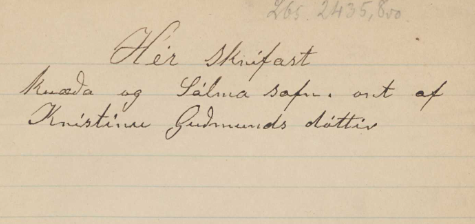 265. 2435, 8vo.
Hér skrifast
kvæða og Sálma safn. ort af
Kristínu Guðmunds dóttir